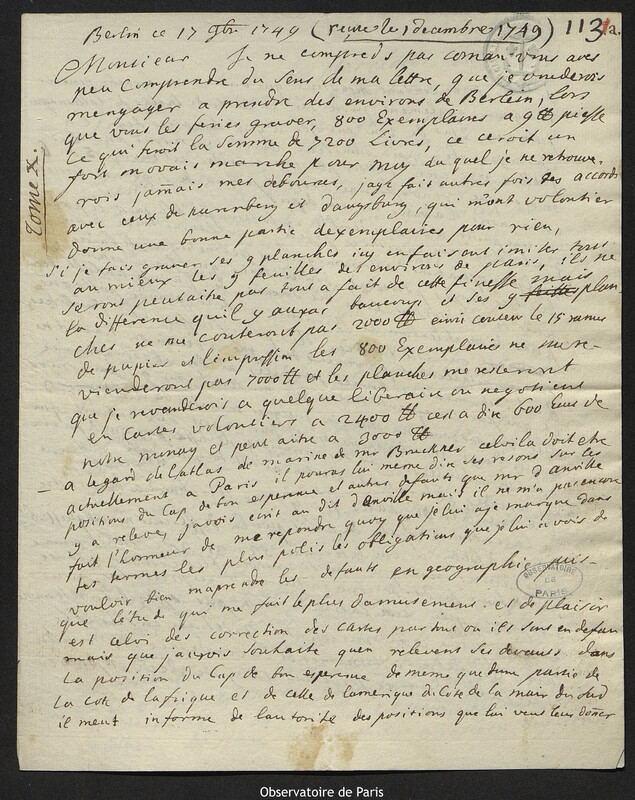 Berlin ce 17 9bre 1749 (reçue le 1 decembre 1749) 113a.
Tome X.
Monsieur Je ne comprends pas coman vous aves
peu comprendre du sens de ma lettre, que je voudrois
mengager a prendre des environs de Berlein, lors
que vous les feries graver, 800 Exemplaires a 9 tt piesse
ce qui feroit la Somme de 7200 Livres, ce ceroit un
fort movais marche pour moy du quel je ne retrouve-
rois jamais mes debources, jaye fait autres fois des accords
avec ceux de nurenberg et daugsburg, qui mont volontier
donne une bonne partie dexemplaires pour rien,
si je fais graver ses 9 planches icy en faisant imiter tous
au mieux les 9 feuilles des environs de paris, ils ne
serons peutaitre pas tous a fait de cette finesse mais
la difference quil y auras baucoup et ses 9 plan
ches ne me couteront pas 2000 tt einsi conteur le 15 rames
de papier et limpression les 800 Exemplaires ne me re-
vienderont pas 7000 tt et les planches me resteront
que je revanderois a quelque liberain ou negotient
en Cartes volontiers a 2400 tt cest a dire 600 Ecus de
notre monoy et peut aitre a 3000 tt
a legard de latlas de marine de mr Bruckner celvila doit etre
actuellement a Paris il pouras lui meme dire ses resons sur les
positions du Cap de bon esperence et autres defauts que mr danville
y a releves, javois ecrit au dit danville mais il ne ma pas encore
fait lhonneur de me repondre quoy que je lui aje marque dans
tes termes les plus polis les obligations que je lui avois de
vouloir bien maprendre les defauts en geographie puis-
que létude qui me fait le plus damusement et de plaisir
est celvi des correction des cartes partout ou ils sont en defaut
mais que jaurois souhaite quen relevent ses devauts dans
La position du Cap de bon esperence de meme que dune partie de
la cote de lafrique et de celle de lamerique du Cote de la mair du sud
il meut informe de lautorite des positions que lui veut leur doner
OBSERVATOIRE DE PARIS
Observatoire de Paris